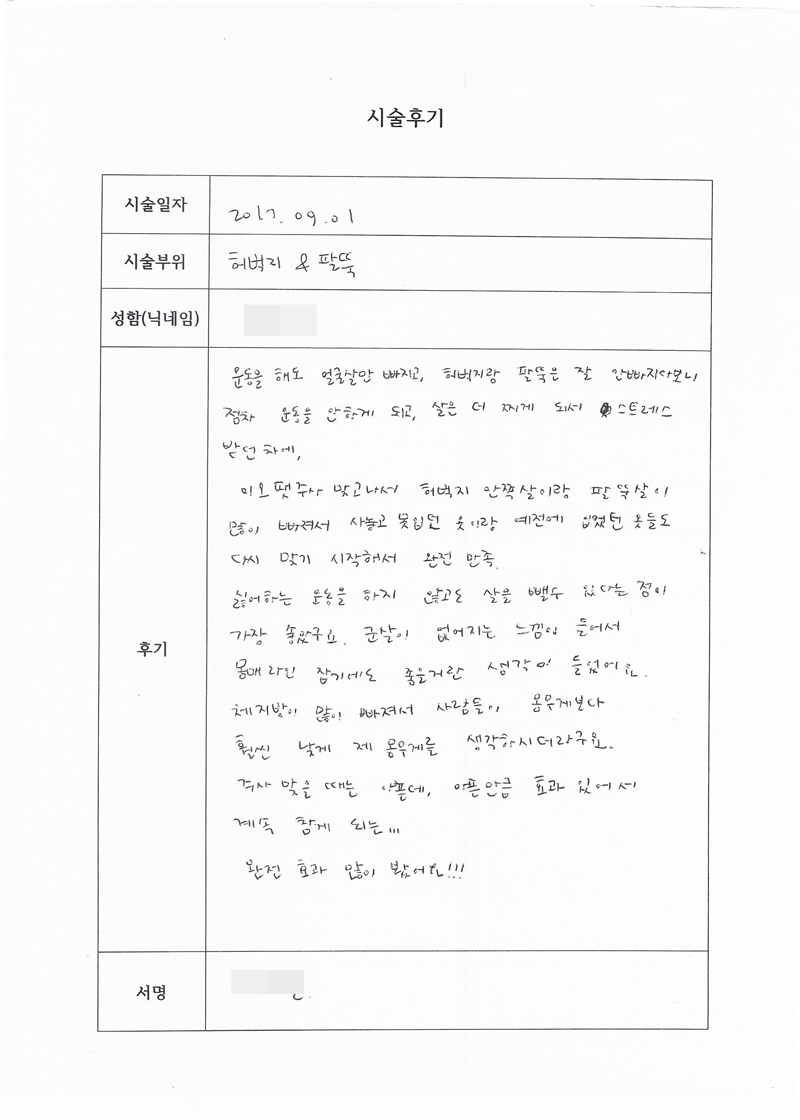 시술후기
시술일자 2017.09.01
시술부위 허벅지 & 팔뚝
성함(닉네임)
후기
운동을 해도 얼굴살만 빠지고, 허벅지랑 팔뚝은 잘 안빠지다보니
점차 운동을 안하게 되고, 살은 더 찌게 되서 스트레스
받던 차에,
미오팻주사 맞고나서 허벅지 안쪽살이랑 팔뚝살이
많이 빠져서 사놓고 못입던 옷이랑 예전에 입었던 옷들도
다시 맞기 시작해서 완전 만족.
싫어하는 운동을 하지 않고도 살을 뺄수 있다는 점이
가장 좋았구요. 군살이 없어지는 느낌이 들어서
몸매 라인 잡기에도 좋을거란 생각이 들었어요.
체지방이 많이 빠져서 사람들이 몸무게보다
훨씬 낮게 제 몸무게를 생각하시더라구요.
주사 맞을 때는 아픈데, 아픈만큼 효과 있어서
계속 참게 되는...
완전 효과 많이 봤어요!!!
서명